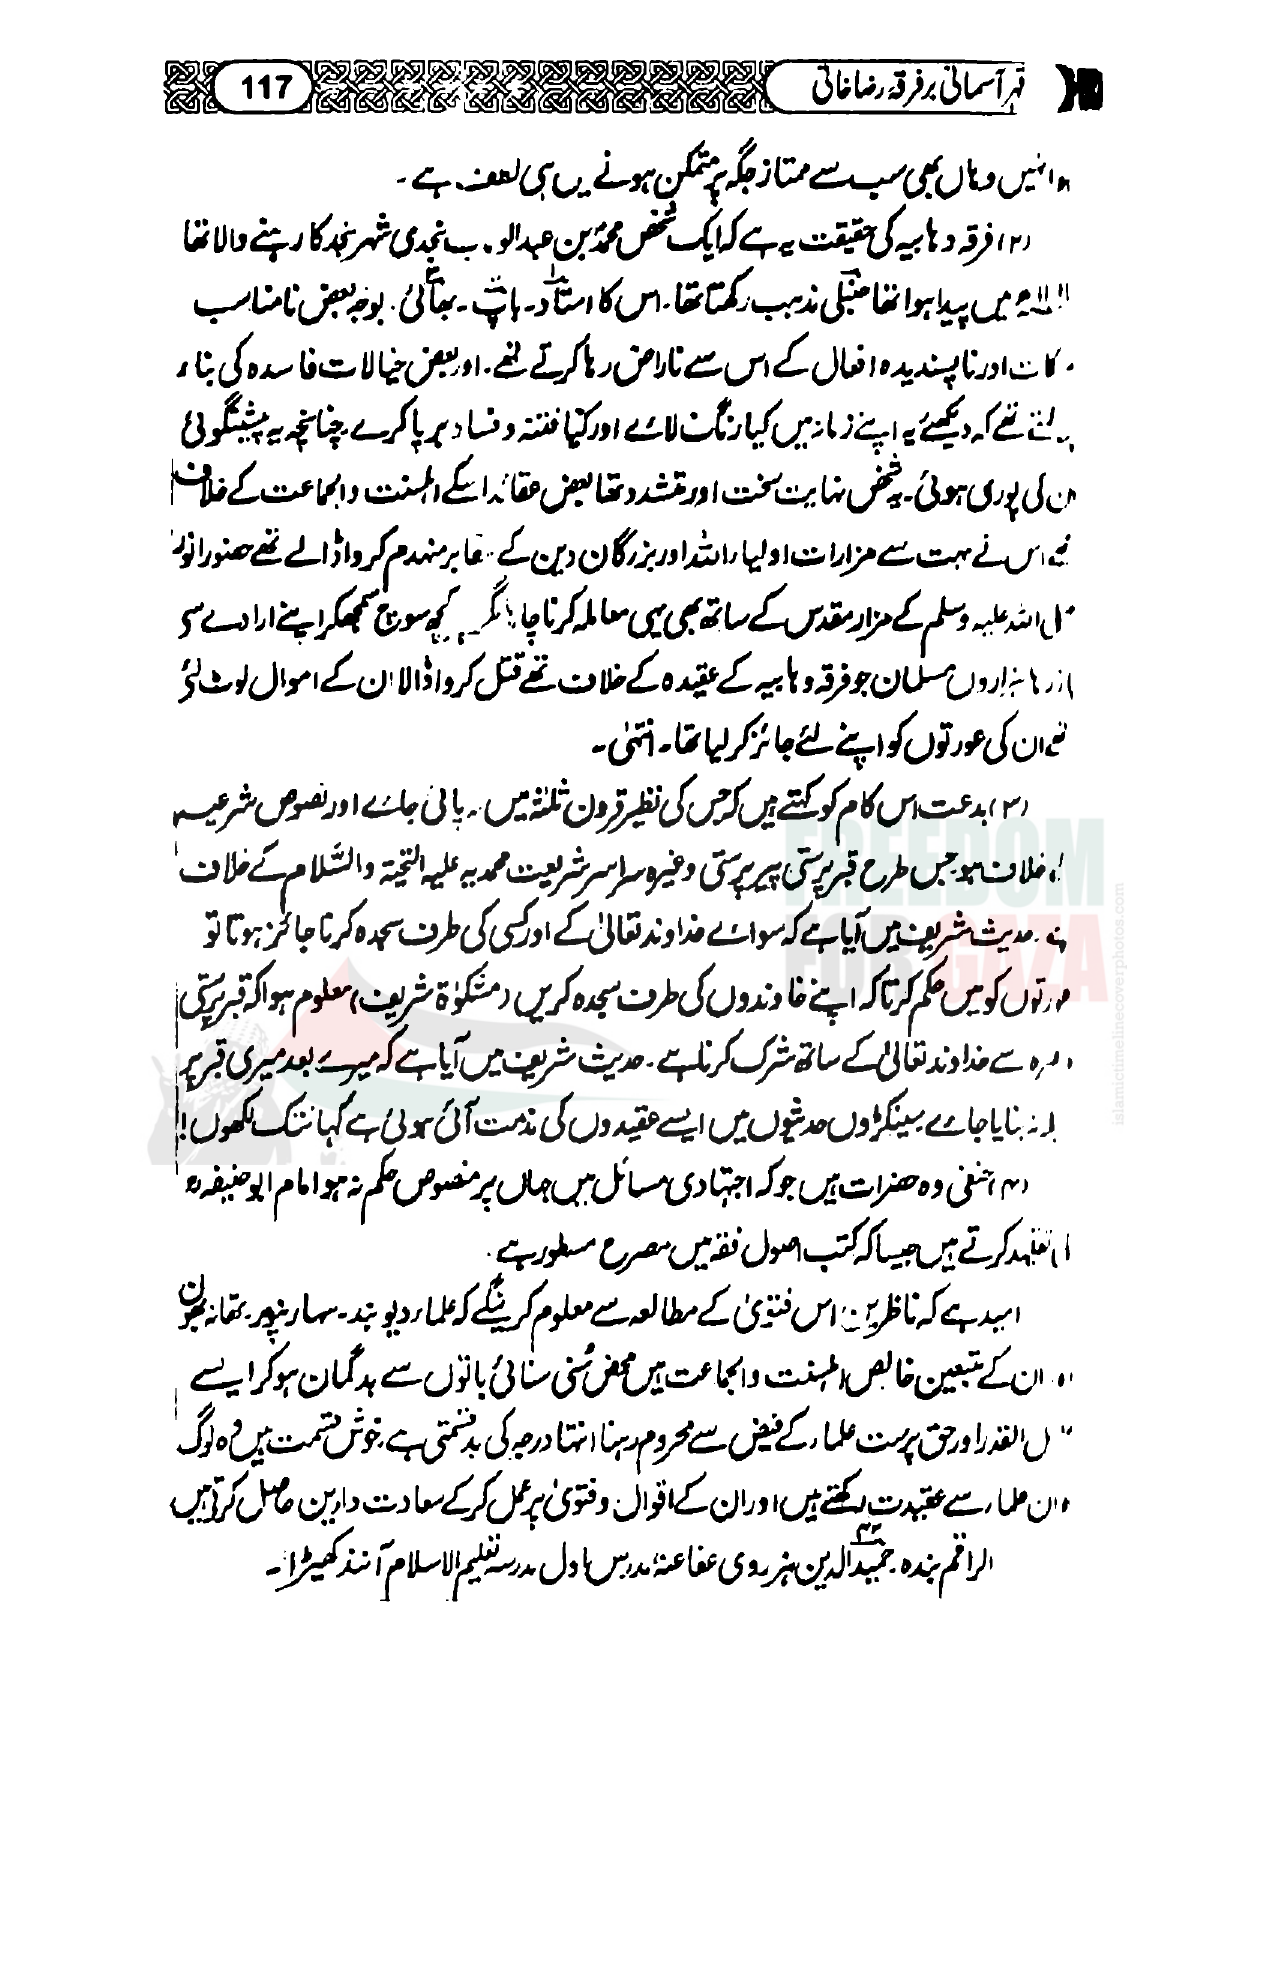 قہر آسمانی بر فرقہ رضاخانی
117
انہیں وہاں بھی سب سے ممتاز جگہ پر متمکن ہونے میں ہی لطف ہے۔
(۲) فرقہ وہابیہ کی حقیقت یہ ہے کہ ایک شخص محمد بن عبدالو ب نجدی شہر نجد کا رہنے والا تھا
میں پیدا ہوا تھا حنبلی مذہب رکھتا تھا۔ اس کا استاد۔ باپ۔ بھائی۔ بوجہ بعض نامناسب
کات اور ناپسندیدہ افعال کے اس سے ناراض رہا کرتے تھے۔ اور بعض خیالات فاسدہ کی بناء
تھے کہ دیکھئے یہ اپنے زمانہ میں کیا رنگ لائے اور کیا فتنہ و فساد برپا کرے چنانچہ یہ پیشینگوئی
ن کی پوری ہوئی۔ یہ شخص نہایت سخت اور متشدد تھا بعض عقائد اسکے اہلسنت والجماعت کے خلاف
تھے اس نے بہت سے مزارات اولیاء اللہ اور بزرگان دین کے مقابر منہدم کروا ڈالے تھے حضور انور
اللہ علیہ وسلم کے مزار مقدس کے ساتھ بھی یہی معاملہ کرنا چاہا مگر کچھ سوچ سمجھکر اپنے ارادے سے
باز رہا ہزاروں مسلمان جو فرقہ وہابیہ کے عقیدہ کے خلاف تھے قتل کروا ڈالا ان کے اموال لوٹ لئے
تھے ان کی عورتوں کو اپنے لئے جائز کر لیا تھا۔ انتہیٰ۔
(۳) بدعت اس کام کو کہتے ہیں کہ جس کی نظیر قرون ثلٰثہ میں نہ پائی جائے اور نصوص شرعیہ
خلاف ہو جس طرح قبر پرستی پیر پرستی وغیرہ سراسر شریعت محمدیہ علیہ التحیۃ والسَّلام کے خلاف
ہے۔ حدیث شریف میں آیا ہے کہ سوائے خداوند تعالیٰ کے اور کسی کی طرف سجدہ کرنا جائز ہوتا تو
عورتوں کو میں حکم کرتا کہ اپنے خاوندوں کی طرف سجدہ کریں (مشکوٰۃ شریف) معلوم ہوا کہ قبر پرستی
سے خداوند تعالیٰ کے ساتھ شرک کرنا ہے۔ حدیث شریف میں آیا ہے کہ میرے بعد میری قبر پر
نہ بنایا جائے سینکڑوں حدیثوں میں ایسے عقیدوں کی مذمت آئی ہوئی ہے کہا نتک لکھوں!
(۴) حنفی وہ حضرات ہیں جو کہ اجتہادی مسائل میں جہاں پر منصوص حکم نہ ہو امام ابو حنیفہ رح
کی تقلید کرتے ہیں جیسا کہ کتب اصول فقہ میں مصرح مسطور ہے۔
امید ہے کہ ناظرین اس فتویٰ کے مطالعہ سے معلوم کرینگے کہ علماء دیوبند۔ سہارنپور۔ تھانہ بھون
ان کے متبعین خالص اہلسنت والجماعت ہیں محض سُنی سنائی باتوں سے بدگمان ہو کر ایسے
القدر اور حق پرست علماء کے فیض سے محروم رہنا انتہا درجہ کی بدقسمتی ہے خوش قسمت ہیں وہ لوگ
ان علماء سے عقیدت رکھتے ہیں اور ان کے اقوال و فتویٰ پر عمل کر کے سعادت دارین حاصل کرتے ہیں
الراقم بندہ حمید الدین ہزروی عفا عنہ مدرس اول مدرسہ تعلیم الاسلام آنند کھیڑا۔
FREEDOM
FOR GAZA
islamictimelinecoverphotos.com